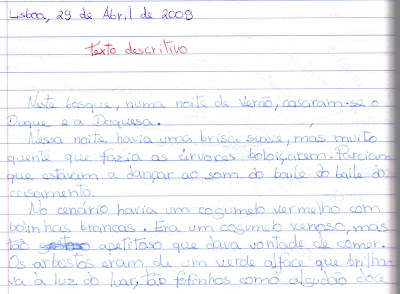 Lisboa, 29 de Abril de 2009
Texto descritivo
Neste bosque, numa noite de Verão, casaram-se o
Duque e a Duquesa.
Nessa noite havia uma brisa suave, mas muito
quente que fazia as árvores baloiçarem. Parciam
que estavam a dançar ao som do baile do baile do
casamento.
No cenário havia um cogumelo vermelho com
bolinhas brancas. Era um cogumelo venoso, mas
tão apetitoso que dava vontade de comer.
Os arbustos eram de um verde alface que brilha-
va à luz do luar, tão fofinhos como algodão doce